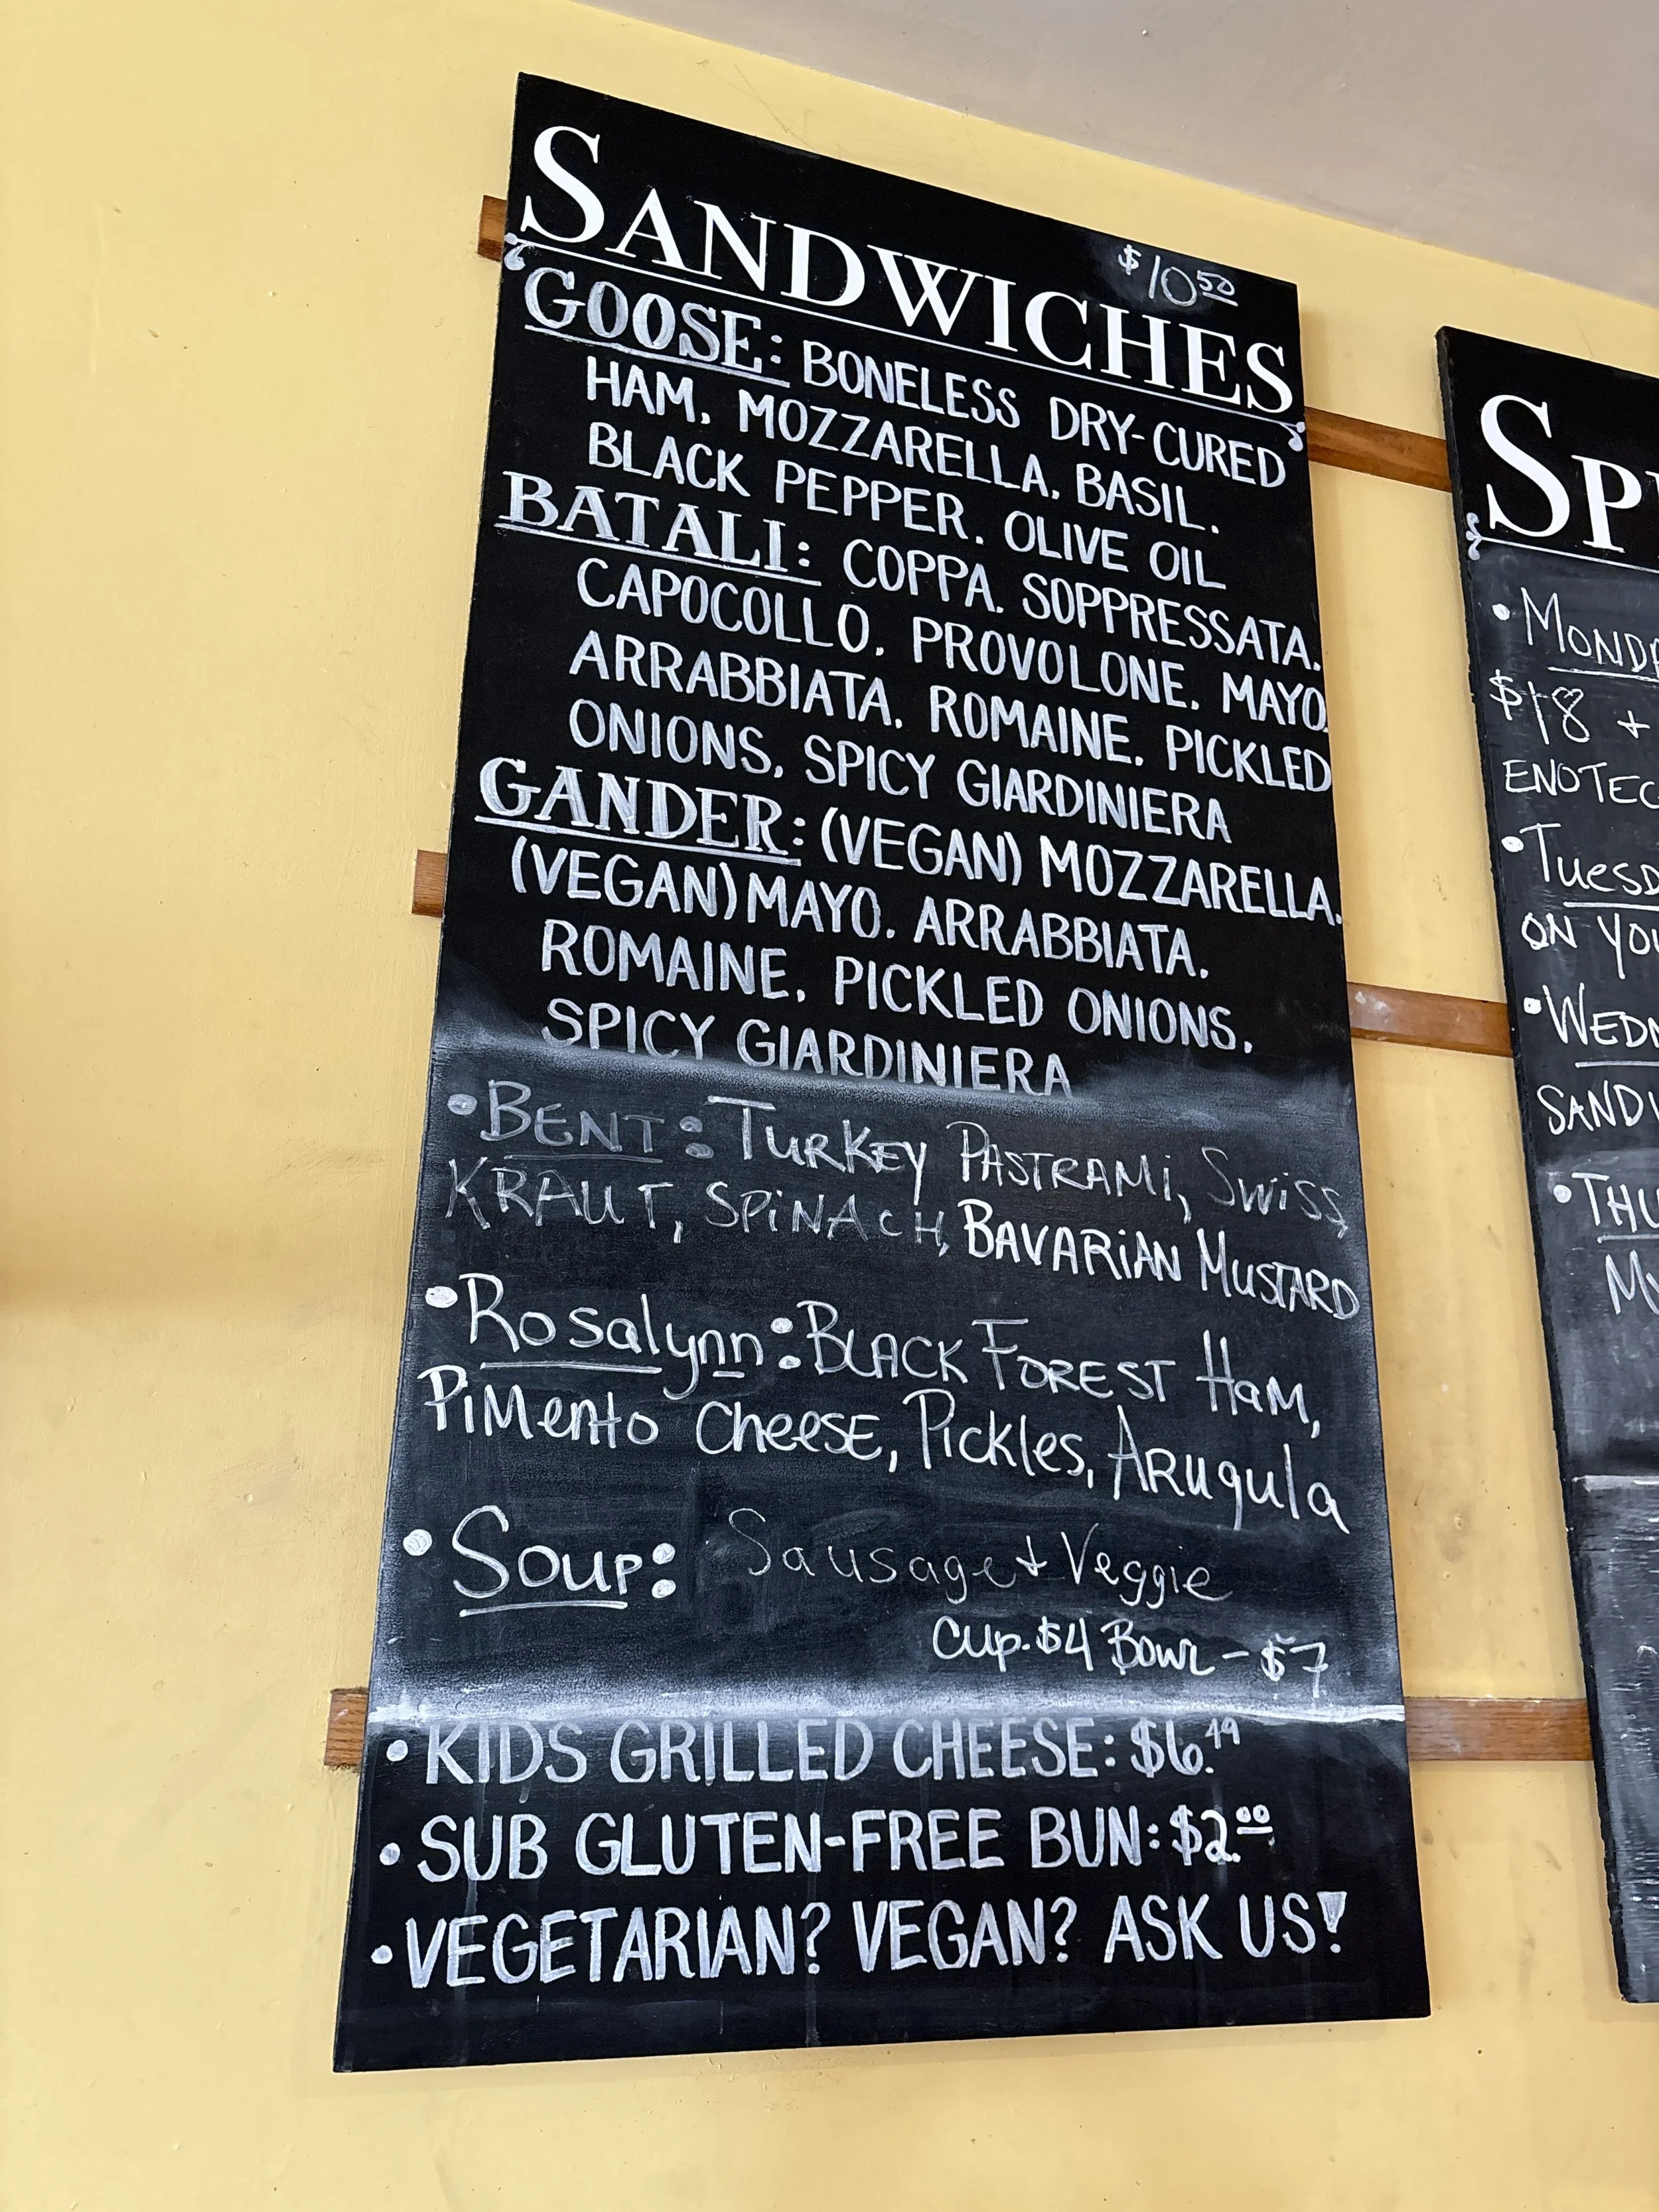 SANDWICHES
$10.50
GOOSE: BONELESS DRY-CURED
HAM, MOZZARELLA, BASIL,
BLACK PEPPER, OLIVE OIL
BATALI: COPPA, SOPPRESSATA,
CAPOCOLLO, PROVOLONE, MAYO,
ARRABBIATA, ROMAINE, PICKLED
ONIONS, SPICY GIARDINIERA
GANDER: (VEGAN) MOZZARELLA,
(VEGAN) MAYO, ARRABBIATA,
ROMAINE, PICKLED ONIONS,
SPICY GIARDINIERA
• BENT: TURKEY PASTRAMi, SWiSS,
KRAUT, SPiNACH, BAVARiAN MUSTARD
• Rosalynn: BLACK FOREST HaM,
PiMento CheesE, Pickles, ARugula
• Soup: Sausage + Veggie
Cup-$4 BowL - $7
• KIDS GRILLED CHEESE: $6.49
• SUB GLUTEN-FREE BUN: $2.00
• VEGETARIAN? VEGAN? ASK US!
SP
• MOND
$18 +
ENOTEC
• TuesD
ON YOU
• WEDN
SANDW
• THU